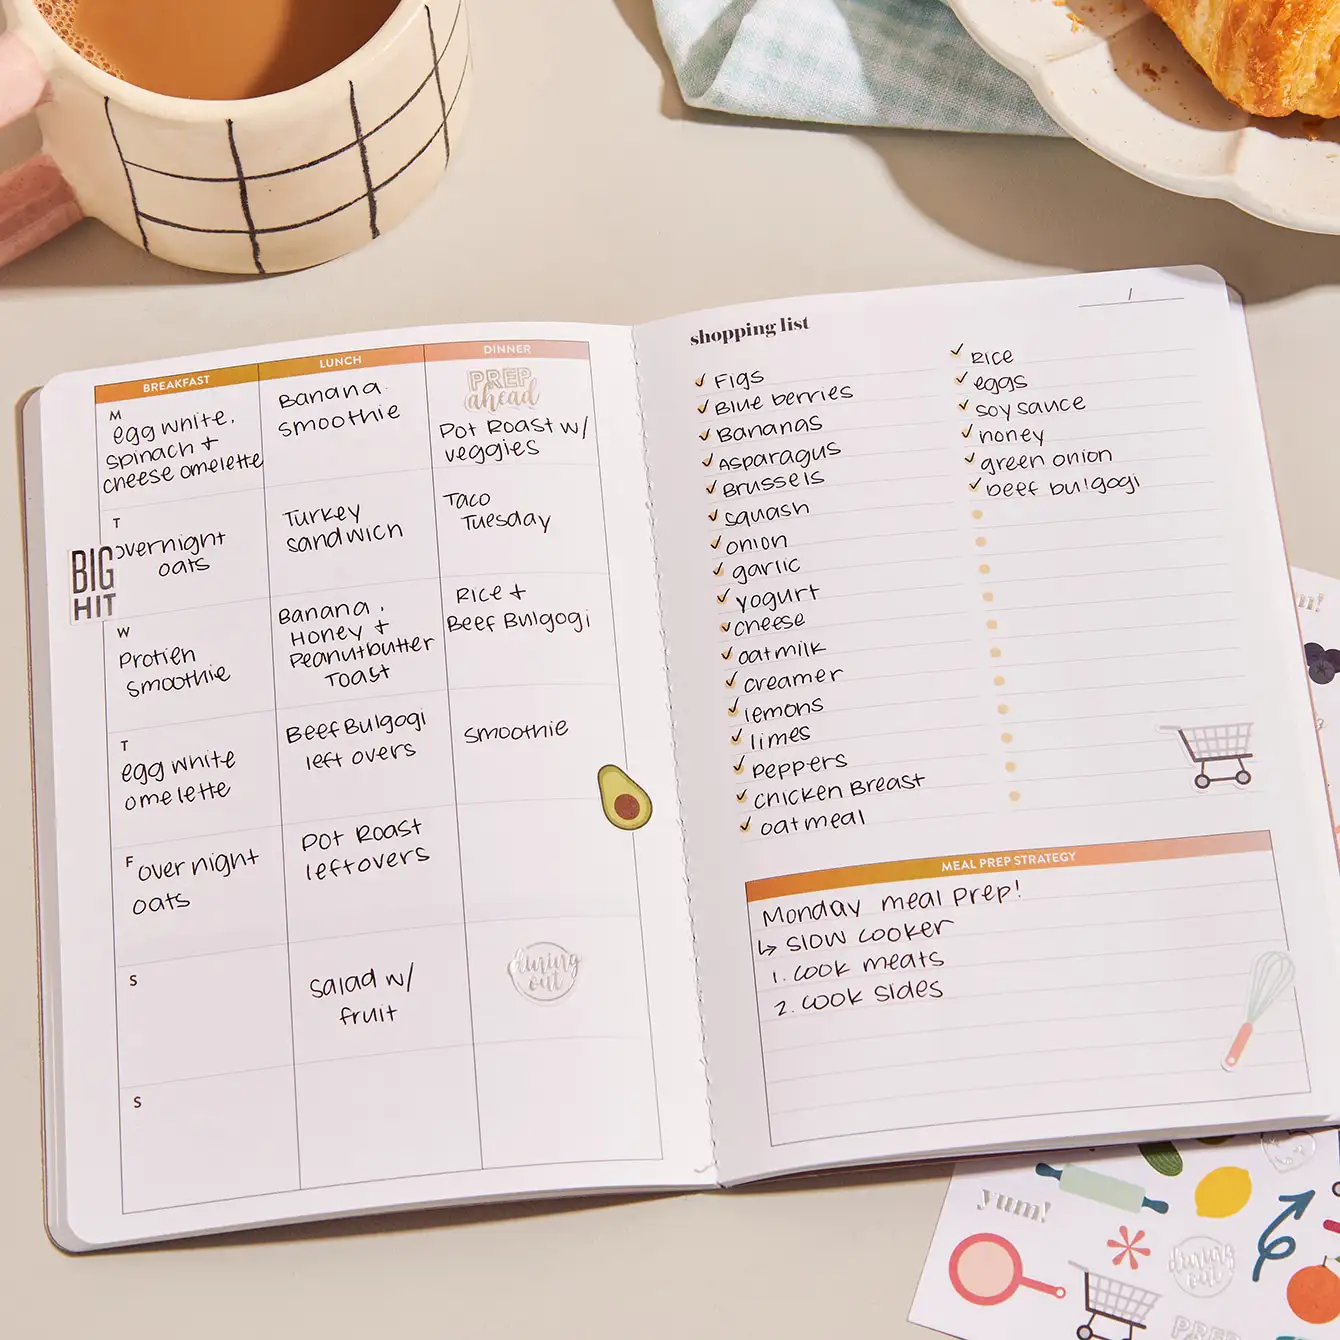 BREAKFAST
LUNCH
DINNER
M
egg white,
spinach +
cheese omelette
Banana
smoothie
PREP
ahead
Pot Roast w/
veggies
T
BIG
HIT
overnight
oats
Turkey
sandwich
Taco
Tuesday
W
Protien
smoothie
Banana,
Honey +
Peanutbutter
Toast
Rice +
Beef Bulgogi
T
egg white
omelette
Beef Bulgogi
left overs
smoothie
F
over night
oats
Pot Roast
leftovers
S
Salad w/
fruit
dining
out
S
shopping list
/
Figs
Blue berries
Bananas
Asparagus
Brussels
squash
onion
garlic
yogurt
cheese
oatmilk
creamer
lemons
limes
peppers
chicken Breast
oatmeal
Rice
eggs
soy sauce
honey
green onion
beef bulgogi
MEAL PREP STRATEGY
Monday meal Prep!
↳ slow cooker
1. cook meats
2. cook sides
yum!
dining
out
PREP